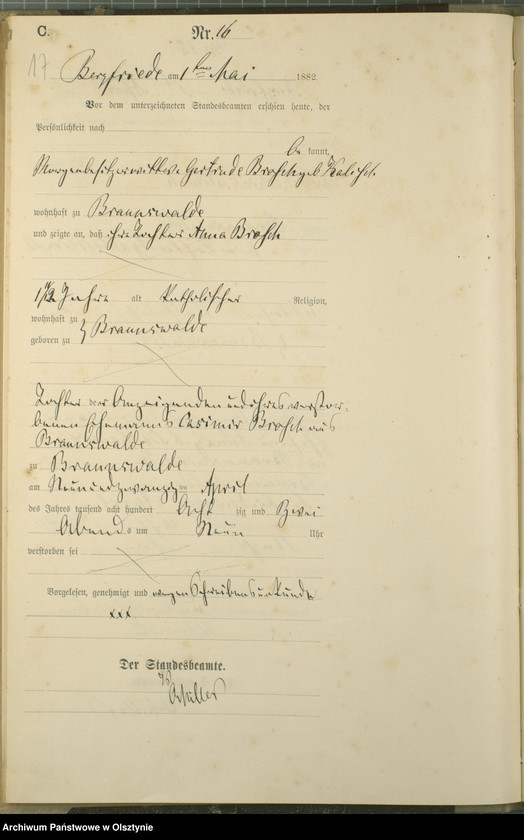 C.
Nr. 16
17
Bergfriede am 1ten Mai 1882.
Vor dem unterzeichneten Standesbeamten erschien heute, der
Persönlichkeit nach
be kannt,
Morgenbesitzerwittwe Gertrude Broschk geb
wohnhaft zu Braunswalde
und zeigte an, daß ihre Tochter Anna
Jahre alt katholischer Religion,
wohnhaft zu
geboren zu } Braunswalde
Tochter der Anzeigenden und ihres verstor-
benen Ehemanns Casimir aus
Braunswalde
zu Braunswalde
am Neunundzwanzigten April
des Jahres tausend acht hundert Acht zig und Zwei
Abends um Neun Uhr
verstorben sei
Vorgelesen, genehmigt und wegen Schreibensunkunde
xxx
Der Standesbeamte.
Müller
Archiwum Państwowe w Olsztynie